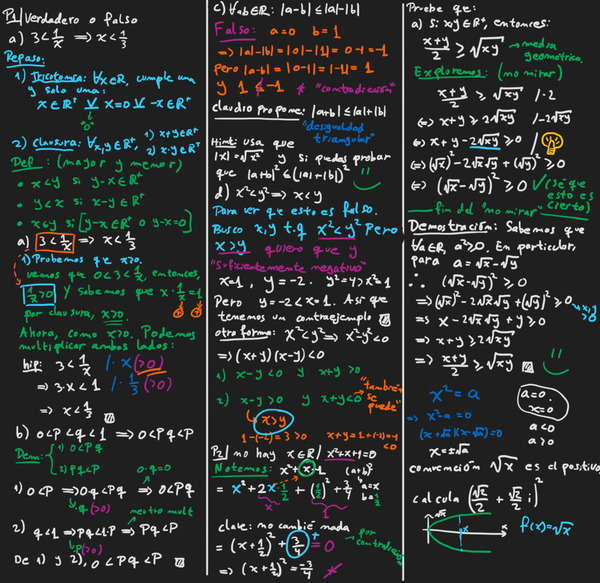 P1/ Verdadero o falso
a) 3 < 1/x ⟹ x < 1/3
Repaso:
1) Tricotomía: ∀x∈R, cumple una
y solo una:
x∈R⁺ ⊻ x=0 ⊻ -x∈R⁺
"o"
2) Clausura: ∀x,y∈R⁺, 1) x+y∈R⁺
2) x·y∈R⁺
Def: (mayor y menor)
• x<y si y-x∈R⁺
• y<x si x-y∈R⁺
• x≤y si [y-x∈R⁺ o y-x=0]
a) 3 < 1/x ⟹ x < 1/3
1) Probemos que x>0.
vemos que 0<3<1/x, entonces,
1/x>0 y sabemos que x·1/x=1
por clausura, x>0.
Ahora, como x>0. Podemos
multiplicar ambos lados:
hip: 3<1/x /·x (>0)
⟹ 3·x<1 /·1/3 (>0)
⟹ x<1/3
b) 0<P<q<1 ⟹ 0<Pq<P
Dem: 1) 0<Pq
2) Pq<P
0·q=0
1) 0<P ⟹ 0q<Pq ⟹ 0<Pq
q(>0)
neutro mult
2) q<1 ⟹ Pq<1·P ⟹ Pq<P
P(>0)
De 1) y 2), 0<Pq<P
c) ∀a,b∈R: |a-b| ≤ |a|-|b|
Falso: a=0 b=1
⟹ |a|-|b| = |0|-|1| = 0-1 = -1
pero |a-b| = |0-1| = |-1| = 1
y 1 ≰ -1 * "contradicción"
claudio propone: |a+b| ≤ |a|+|b|
"desigualdad
triangular"
Hint: usa que
|x|=√x² y si puedas probar
que |a+b|² ≤ (|a|+|b|)²
d) x²<y² ⟹ x<y
Para ver que esto es falso.
Busco x,y t.q x²<y² Pero
x>y quiero que y
"suficientemente negativo"
x=1, y=-2. y²=4>x²=1
Pero y=-2<x=1. Así que
tenemos un contraejemplo
otra forma: x²<y² ⟹ x²-y²<0
⟹ (x+y)(x-y)<0
1) x-y<0 y x+y>0
2) x-y>0 y x+y<0
"también se puede"
x>y
1-(-2)=3>0 x+y=1+(-2)=-1
<0
P2/ no hay x∈R / x²+x+1=0
Notemos: x²+x+1 (a+b)²
= x²+2x·1/2+(1/2)²+3/4 a=x
b=1/2
clave: no cambié nada
= (x+1/2)²+3/4 = 0 por contradicción
⟹ (x+1/2)² = -3/4
Pruebe que:
a) si x,y∈R⁺, entonces:
(x+y)/2 ≥ √xy → media
geométrica.
Exploremos: (no mirar)
(x+y)/2 ≥ √xy /·2
⟺ x+y ≥ 2√xy /-2√xy
⟺ x+y-2√xy ≥ 0
⟺ (√x)²-2√x√y+(√y)² ≥ 0
⟺ (√x-√y)² ≥ 0 (sé que
esto es
cierto)
fin del "no mirar"
Demostración: Sabemos que
∀a∈R, a²≥0. En particular,
para a=√x-√y
∴ (√x-√y)² ≥ 0
⟹ (√x)²-2√x√y+(√y)² ≥ 0 x,y>0
⟹ x-2√x√y+y ≥ 0
⟹ x+y ≥ 2√xy
⟹ (x+y)/2 ≥ √xy
x²=a
⟹ x²-a=0
(x+√a)(x-√a)=0
x=±√a
a=0.
x=0
a<0
a>0
convención √x es el positivo
calcula (√2/2+√2/2 i)²
√x
x
f(x)=√x